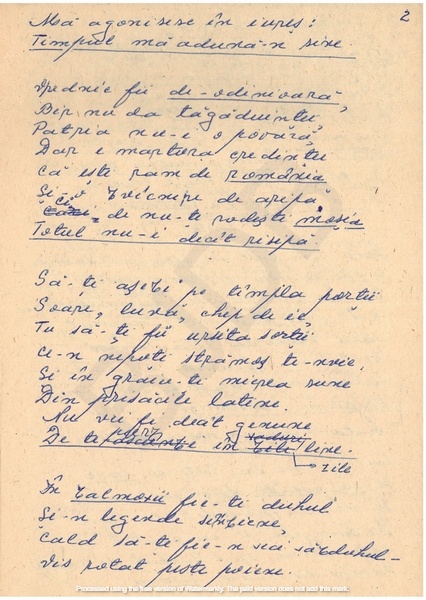 2
Mă agonisise în iureș:
Timpul mă adună-n sine.
Vrednic fii de-odinioară,
Bir nu da tăgăduinții,
Patria nu-i o povară,
Dar e martora credinții
Că este ram de România
Și-o zvîcnire de aripă
Că de nu-te rodești
Totul nu-i decât risipă.
Să-ți așezi pe tîmpla porții
Soare, luna, chip de ie
Tu să-ți fii ursita sorții
Ce-n nepoți strămoș te-nvie.
Și în graiu-ți mierea sune
Din prisăcile latine.
Nu vei fi decât genune
De te în line.
zile
În Zalmoxii fie-ți duhul
Și-n legende
Cald să-ți fie-n sei văzduhul-
Vis rotat peste poiene.
Processed using the free version of Watermarkly. The paid version does not add this mark.